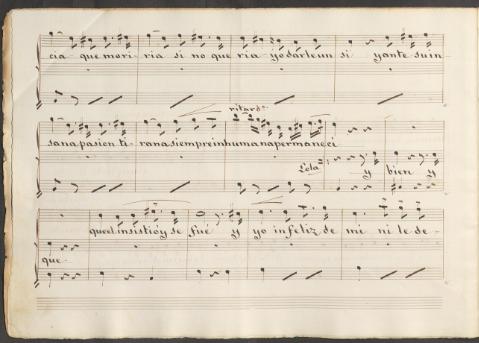 cia que mori - ria si no que ria yo darle un si y ante su in -
ritard.
sana pasion ti - rana siempre inhumana permaneci
Lola
y bien y
que el insistió y se fué y yo infeliz de mi ni le de -
que